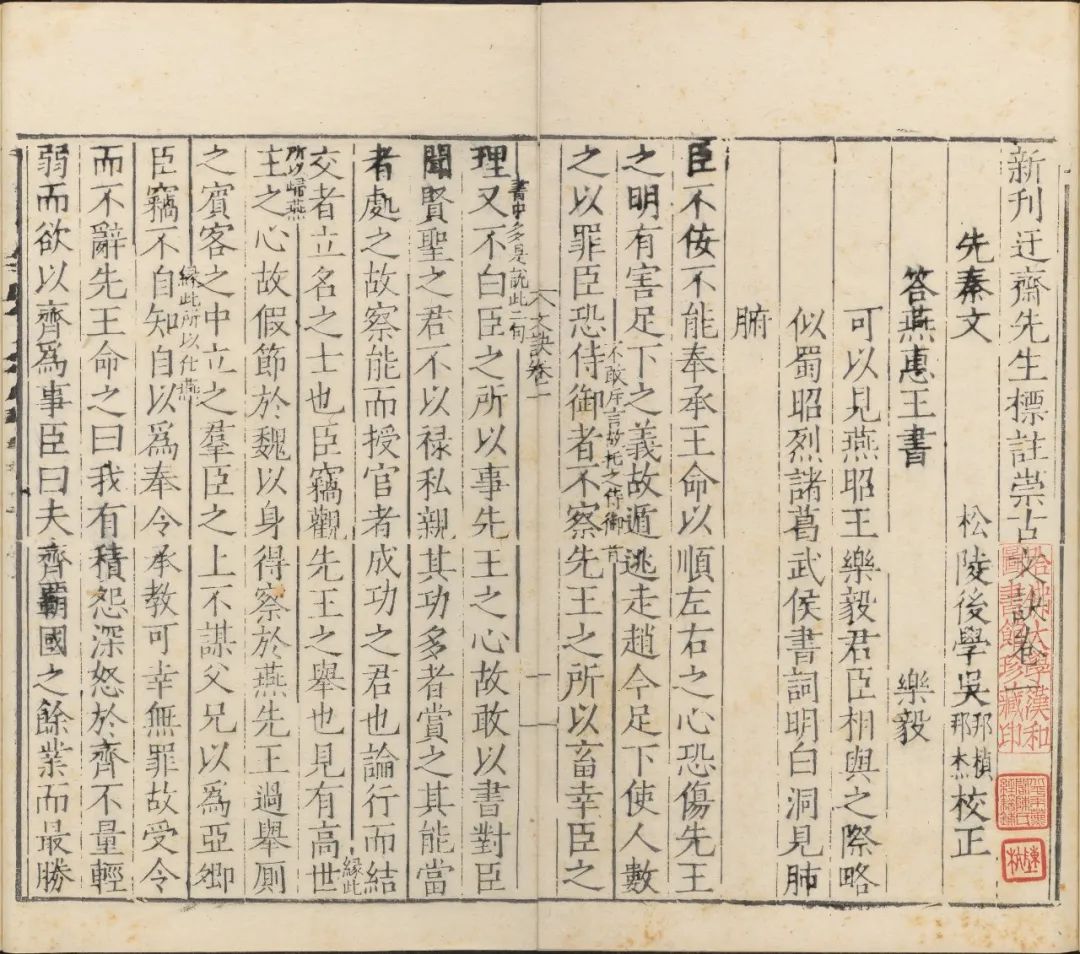 新刊迂齋先生標註崇古文訣卷一
先秦文
松陵後學吳邦楨邦杰校正
答燕惠王書
樂毅
可以見燕昭王樂毅君臣相與之際略
似蜀昭烈諸葛武侯書詞明白洞見肺
腑
臣不佞不能奉承王命以順左右之心恐傷先王
之明有害足下之義故遁逃走趙今足下使人數
不敢斥言故托之侍御者
之以罪臣恐侍御者不察先王之所以畜幸臣之
文訣卷一
一
書中多是說此二句
理又不白臣之所以事先王之心故敢以書對臣
聞賢聖之君不以祿私親其功多者賞之其能當
者處之故察能而授官者成功之君也論行而結
緣此
交者立名之士也臣竊觀先王之舉也見有高世
所以歸燕
主之心故假節於魏以身得察於燕先王過舉厠
之賓客之中立之羣臣之上不謀父兄以為亞卿
緣此所以仕燕
臣竊不自知自以為奉令承教可幸無罪故受令
而不辭先王命之曰我有積怨深怒於齊不量輕
弱而欲以齊為事臣曰夫齊霸國之餘業而最勝
哈佛大學漢和圖書館珍藏印